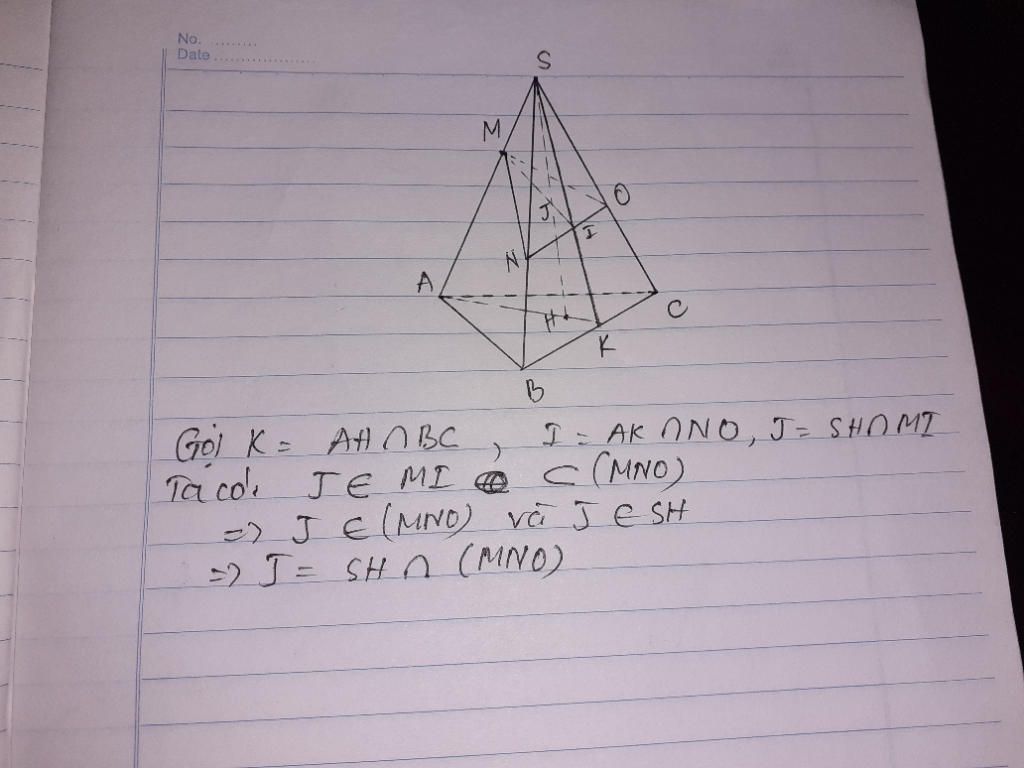 No. ..........
Date ....................
S
M
O
J
I
N
A
C
H
K
B
Gọi K = AH ∩ BC , I = AK ∩ NO, J = SH ∩ MI
Ta có: J ∈ MI ⊂ (MNO)
=> J ∈ (MNO) và J ∈ SH
=> J = SH ∩ (MNO)